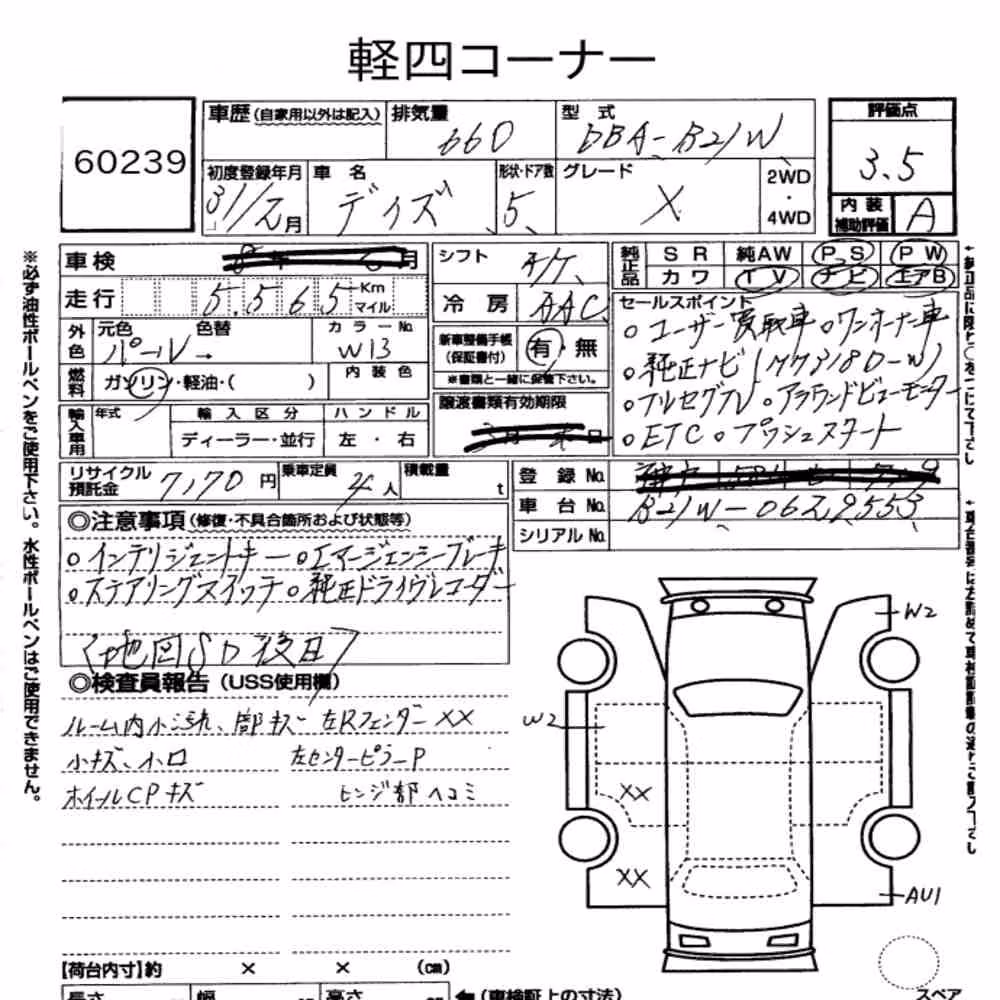 軽四コーナー
60239
車歴(自家用以外は記入) 排気量 660 型式 DBA-B21W
評価点 3.5
初度登録年月 31/元月 車名 デイズ 形状・ドア数 5 グレード X 2WD・4WD
内装補助評価 A
車検 月
走行 5.5565 Km マイル
外色 元色 パール→ 色替 カラーNo. W13
燃料 ガソリン・軽油・( ) 内装色
輸入車用 年式 輸入区分 ハンドル
ディーラー・並行 左・右
シフト
冷房 AAC
新車整備手帳(保証書付) 有・無
※書類と一緒に保管下さい。
譲渡書類有効期限
純正品 SR 純AW PS PW
カワ TV ナビ エアB
セールスポイント
○ユーザー買取車○ワンオーナー車
○純正ナビ(MM318D-W)
○フルセグTV○アラウンドビューモーター
○ETC○プッシュスタート
リサイクル預託金 7,170円 乗車定員 4人 積載量 t
登録No.
車台No. B21W-0629553
シリアルNo.
◎注意事項(修復・不具合箇所および状態等)
○インテリジェントキー○エマージェンシーブレーキ
○ステアリングスイッチ○純正ドライブレコーダー
〈地図SD後日〉
◎検査員報告(USS使用欄)
ルーム内小汚れ、部キズ 左Rフェンダー XX
小キズ、小凹 左センターピラーP
ホイールCPキズ ヒンジ部ヘコミ
W2
W2
XX
XX
AU1
【荷台内寸】約 × × (cm)
長さ 幅 高さ (車検証上の寸法)
スペア
※必ず油性ボールペンをご使用下さい。水性ボールペンはご使用できません。